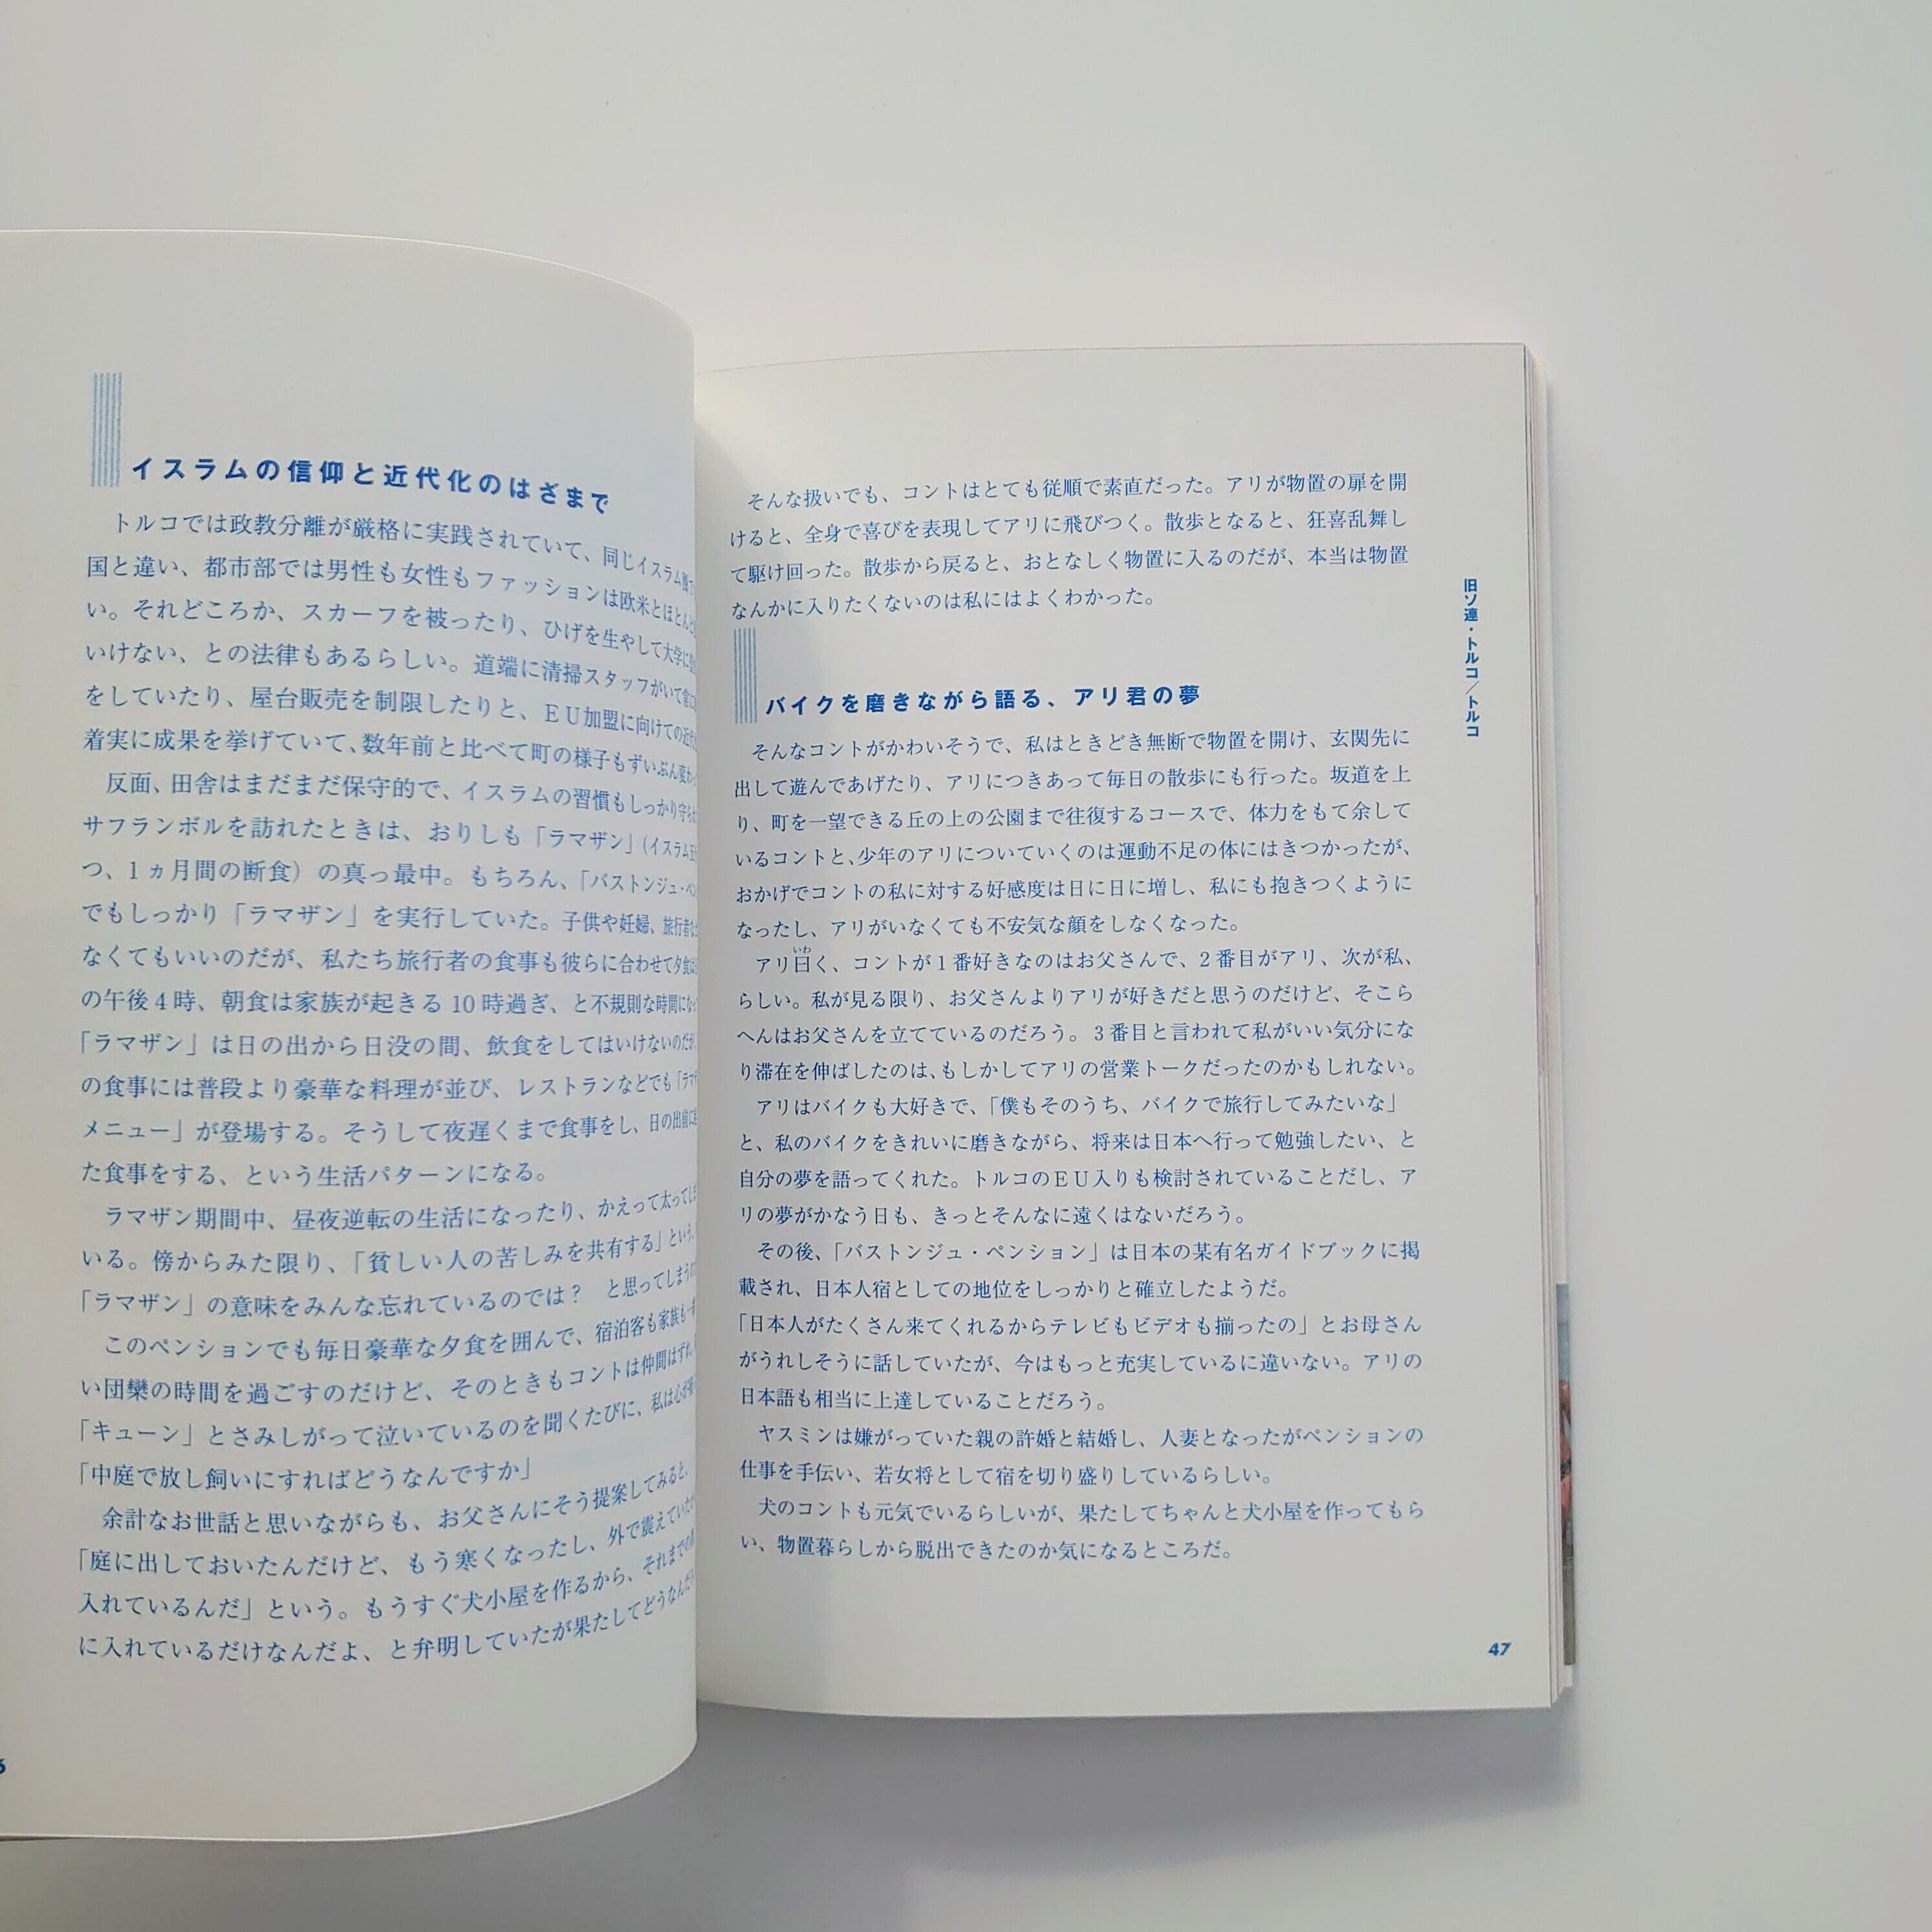 イスラムの信仰と近代化のはざまで
トルコでは政教分離が厳格に実践されていて、同じイスラム
国と違い、都市部では男性も女性もファッションは欧米とほとんど
い。それどころか、スカーフを被ったり、ひげを生やして大学に
いけない、との法律もあるらしい。道端に清掃スタッフがいて常に
をしていたり、屋台販売を制限したりと、EU加盟に向けての近代
着実に成果を挙げていて、数年前と比べて町の様子もずいぶん変わ
反面、田舎はまだまだ保守的で、イスラムの習慣もしっかり守られ
サフランボルを訪れたときは、おりしも「ラマザン」(イスラム
つ、1ヵ月間の断食）の真っ最中。もちろん、「バストンジュ・ペン
でもしっかり「ラマザン」を実行していた。子供や妊婦、旅行者
なくてもいいのだが、私たち旅行者の食事も彼らに合わせて夕食は
の午後4時、朝食は家族が起きる10時過ぎ、と不規則な時間にな
「ラマザン」は日の出から日没の間、飲食をしてはいけないのだが、
の食事には普段より豪華な料理が並び、レストランなどでも「ラマザ
メニュー」が登場する。そうして夜遅くまで食事をし、日の出前に
た食事をする、という生活パターンになる。
ラマザン期間中、昼夜逆転の生活になったり、かえって太ってしま
いる。傍からみた限り、「貧しい人の苦しみを共有する」という、
「ラマザン」の意味をみんな忘れているのでは？　と思ってしまうの
このペンションでも毎日豪華な夕食を囲んで、宿泊客も家族も一
い団欒の時間を過ごすのだけど、そのときもコントは仲間はずれ。
「キューン」とさみしがって泣いているのを聞くたびに、私は心が
「中庭で放し飼いにすればどうなんですか」
余計なお世話と思いながらも、お父さんにそう提案してみると、
「庭に出しておいたんだけど、もう寒くなったし、外で震えていたか
入れているんだ」という。もうすぐ犬小屋を作るから、それまでの
に入れているだけなんだよ、と弁明していたが果たしてどうなんだ
6
そんな扱いでも、コントはとても従順で素直だった。アリが物置の扉を開
けると、全身で喜びを表現してアリに飛びつく。散歩となると、狂喜乱舞し
て駆け回った。散歩から戻ると、おとなしく物置に入るのだが、本当は物置
なんかに入りたくないのは私にはよくわかった。
バイクを磨きながら語る、アリ君の夢
そんなコントがかわいそうで、私はときどき無断で物置を開け、玄関先に
出して遊んであげたり、アリにつきあって毎日の散歩にも行った。坂道を上
り、町を一望できる丘の上の公園まで往復するコースで、体力をもて余して
いるコントと、少年のアリについていくのは運動不足の体にはきつかったが、
おかげでコントの私に対する好感度は日に日に増し、私にも抱きつくように
なったし、アリがいなくても不安気な顔をしなくなった。
いわ
アリ曰く、コントが1番好きなのはお父さんで、2番目がアリ、次が私、
らしい。私が見る限り、お父さんよりアリが好きだと思うのだけど、そこら
へんはお父さんを立てているのだろう。3番目と言われて私がいい気分にな
り滞在を伸ばしたのは、もしかしてアリの営業トークだったのかもしれない。
アリはバイクも大好きで、「僕もそのうち、バイクで旅行してみたいな」
と、私のバイクをきれいに磨きながら、将来は日本へ行って勉強したい、と
自分の夢を語ってくれた。トルコのEU入りも検討されていることだし、ア
リの夢がかなう日も、きっとそんなに遠くはないだろう。
その後、「バストンジュ・ペンション」は日本の某有名ガイドブックに掲
載され、日本人宿としての地位をしっかりと確立したようだ。
「日本人がたくさん来てくれるからテレビもビデオも揃ったの」とお母さん
がうれしそうに話していたが、今はもっと充実しているに違いない。アリの
日本語も相当に上達していることだろう。
ヤスミンは嫌がっていた親の許婚と結婚し、人妻となったがペンションの
仕事を手伝い、若女将として宿を切り盛りしているらしい。
犬のコントも元気でいるらしいが、果たしてちゃんと犬小屋を作ってもら
い、物置暮らしから脱出できたのか気になるところだ。
旧ソ連・トルコ／トルコ
47